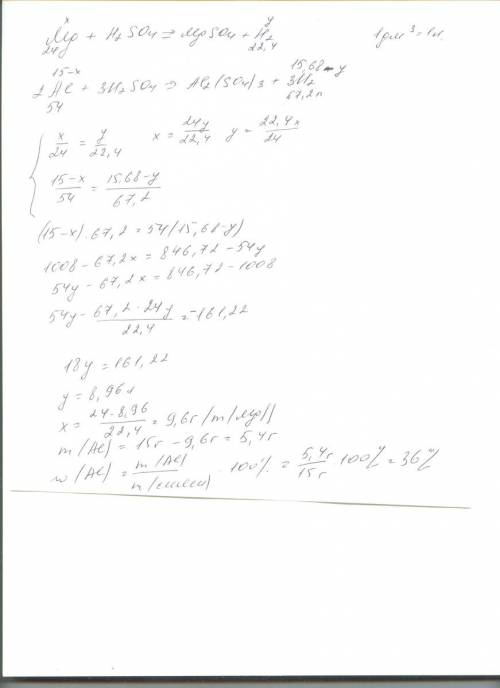 x y
Mg + H2SO4 = MgSO4 + H2 1дм³ = 1л.
24г 22,4
15-x 15,68-y
2Al + 3H2SO4 = Al2(SO4)3 + 3H2
54 67,2л
x/24 = y/22,4 x = 24y/22,4 y = 22,4x/24
15-x/54 = 15,68-y/67,2
(15-x)·67,2 = 54(15,68-y)
1008 - 67,2x = 846,72 - 54y
54y - 67,2x = 846,72 - 1008
54y - 67,2·24y/22,4 = -161,22
18y = 161,22
y = 8,96л
x = 24·8,96/22,4 = 9,6г (m(Mg))
m(Al) = 15г - 9,6г = 5,4г
w(Al) = m(Al)/m(смеси) · 100% = 5,4г/15г · 100% = 36%